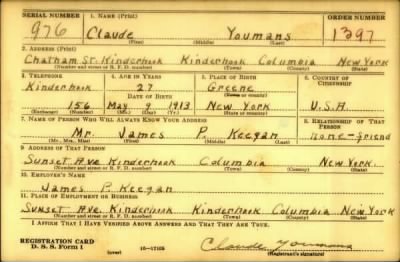 SERIAL NUMBER 1. NAME (Print) ORDER NUMBER
976 Claude Youmans 1397
(First) (Middle) (Last)
2. ADDRESS (Print)
Chatham St. Kinderhook Kinderhook Columbia New York
(Number and street or R. F. D. number) (Town) (County) (State)
3. TELEPHONE 4. AGE IN YEARS 5. PLACE OF BIRTH 6. COUNTRY OF CITIZENSHIP
Kinderhook 27 Greene
DATE OF BIRTH (Town or county)
156 May 9 1913 New York U.S.A.
(Exchange) (Number) (Mo.) (Day) (Yr.) (State or country)
7. NAME OF PERSON WHO WILL ALWAYS KNOW YOUR ADDRESS 8. RELATIONSHIP OF THAT PERSON
Mr. James P. Keegan None-friend
(Mr., Mrs., Miss) (First) (Middle) (Last)
9. ADDRESS OF THAT PERSON
Sunset Ave Kinderhook Columbia New York
(Number and street or R. F. D. number) (Town) (County) (State)
10. EMPLOYER'S NAME
James P. Keegan
11. PLACE OF EMPLOYMENT OR BUSINESS
Sunset Ave. Kinderhook Kinderhook Columbia New York
(Number and street or R. F. D. number) (Town) (County) (State)
I AFFIRM THAT I HAVE VERIFIED ABOVE ANSWERS AND THAT THEY ARE TRUE.
REGISTRATION CARD
D. S. S. Form 1 (over) 16—17105 Claude Youmans
(Registrant's signature)